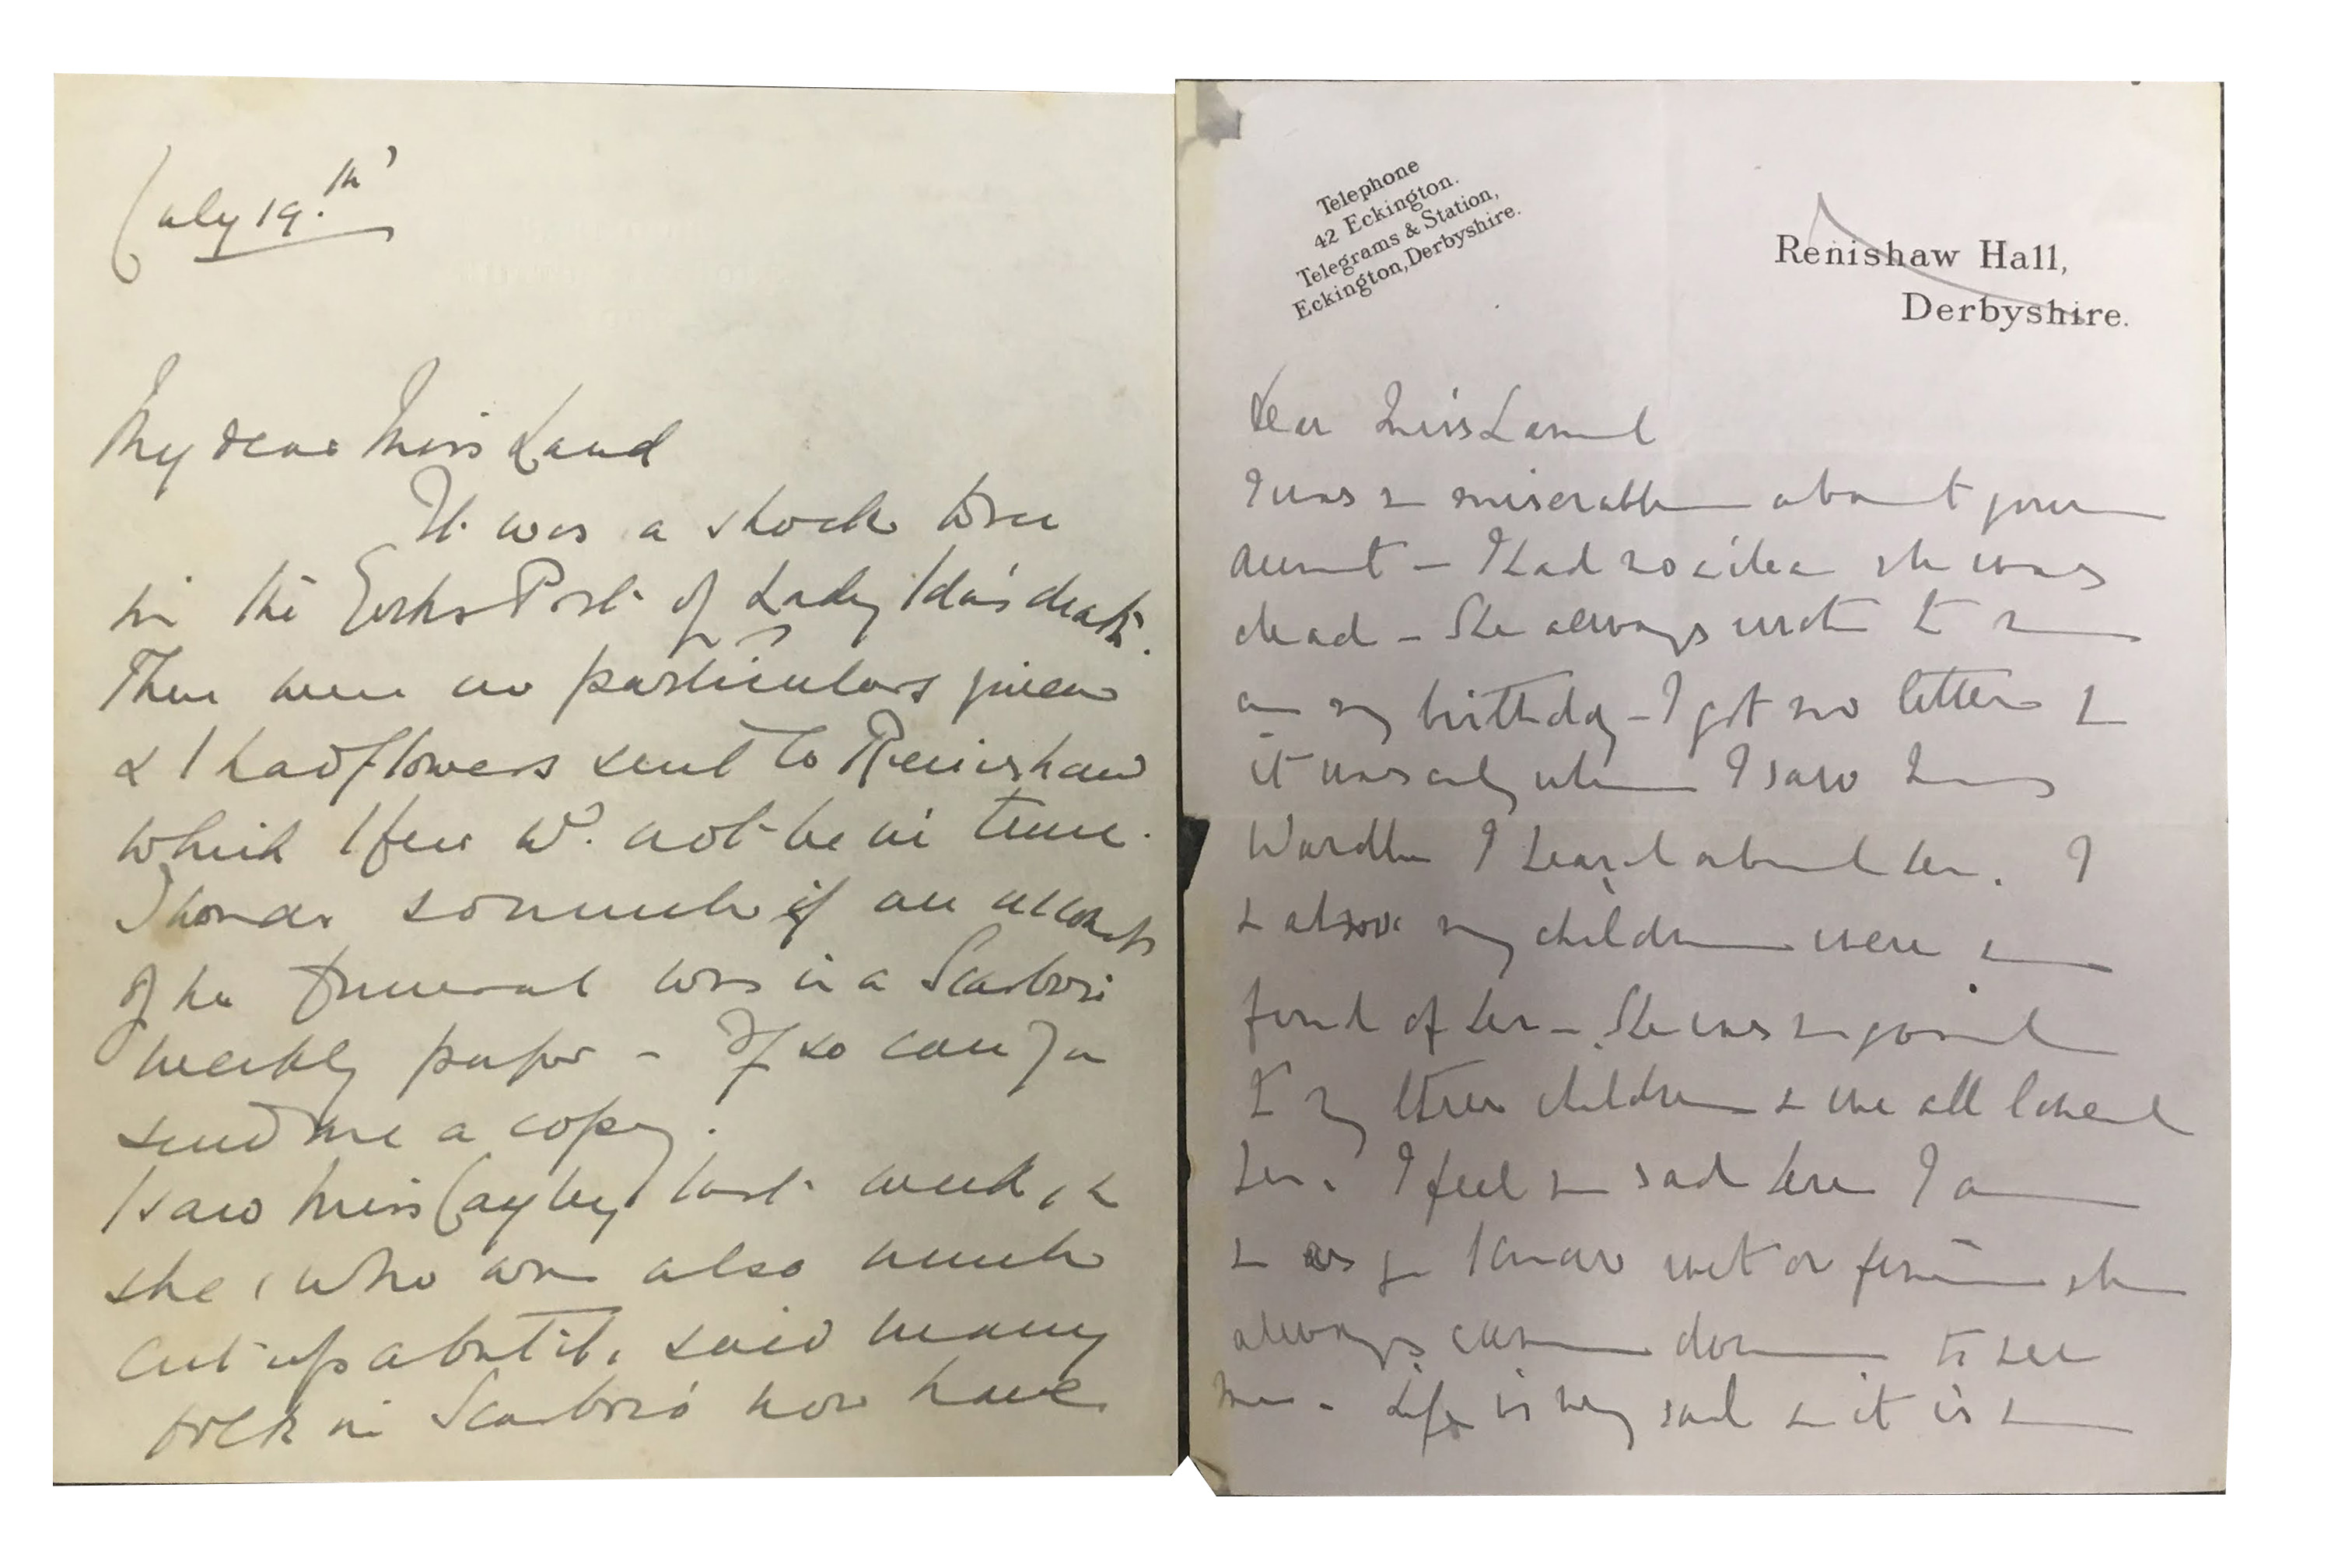 July 19.th
My dear Miss Land
It was a shock to see
in the Yorks Post of Lady Ida's death.
There were no particulars given
& I had flowers sent to Renishaw
which I fear wd. not be in time.
I wonder so much if an account
of her funeral was in a Scarboro'
weekly paper - If so can you
send me a copy.
I saw Miss Cayley last week, &
she, who was also much
cut up about it, said many
folk in Scarboro' now have
Telephone
42 Eckington.
Telegrams & Station,
Eckington, Derbyshire.
Renishaw Hall,
Derbyshire.
Dear Miss Land
I was so miserable about your
aunt - I had no idea she was
dead - She always wrote to me
on my birthday - I got no letter &
it was only when I saw
I heard about her. I
& my children were so
fond of her - She was so good
to my three children & we all loved
her. I feel so sad here I am
& as you know wet or fine she
always came down to see
me - Life is very sad & it is so